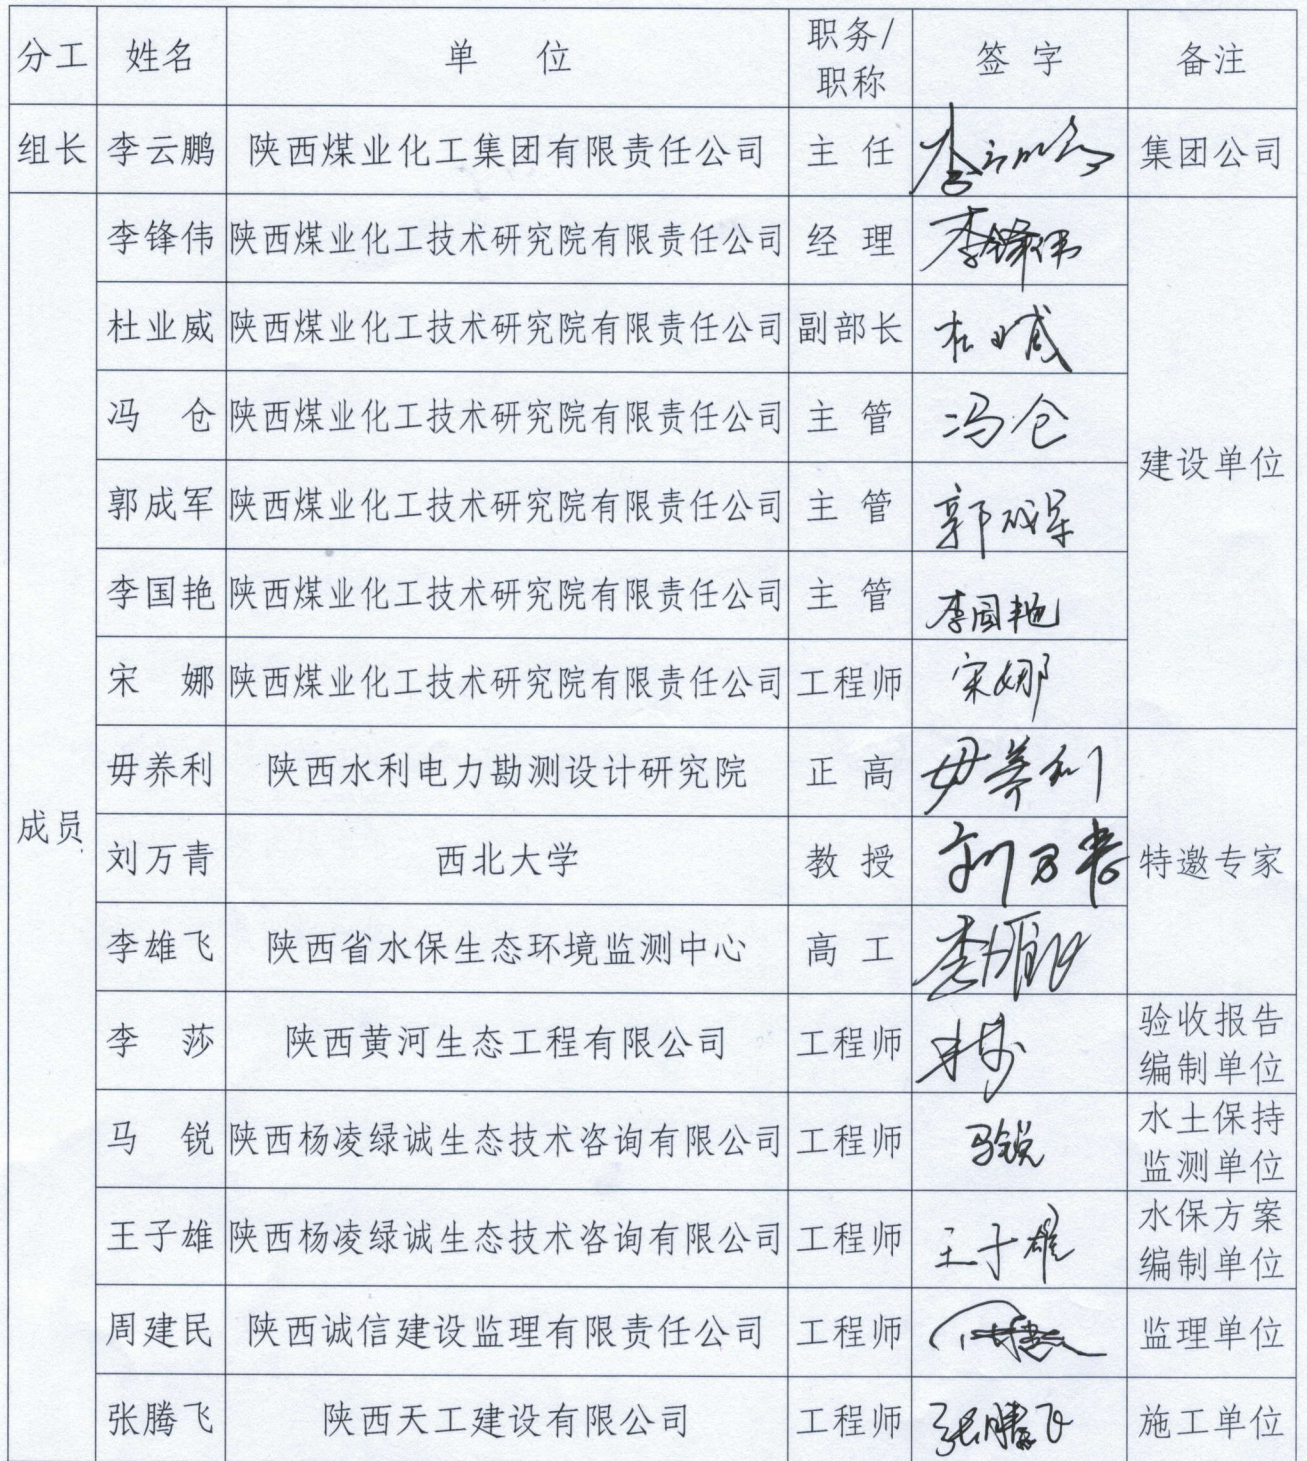 分工 姓名 单 位 职务/职称 签 字 备注
组长 李云鹏 陕西煤业化工集团有限责任公司 主 任 李云鹏 集团公司
成员
李锋伟 陕西煤业化工技术研究院有限责任公司 经 理 李锋伟
杜业威 陕西煤业化工技术研究院有限责任公司 副部长 杜业威
冯 仓 陕西煤业化工技术研究院有限责任公司 主 管 冯仓
建设单位
郭成军 陕西煤业化工技术研究院有限责任公司 主 管 郭成军
李国艳 陕西煤业化工技术研究院有限责任公司 主 管 李国艳
宋 娜 陕西煤业化工技术研究院有限责任公司 工程师 宋娜
毋养利 陕西水利电力勘测设计研究院 正 高 毋养利
刘万青 西北大学 教 授 刘万青 特邀专家
李雄飞 陕西省水保生态环境监测中心 高 工 李雄飞
李 莎 陕西黄河生态工程有限公司 工程师 李莎 验收报告编制单位
马 锐 陕西杨凌绿诚生态技术咨询有限公司 工程师 马锐 水土保持监测单位
王子雄 陕西杨凌绿诚生态技术咨询有限公司 工程师 王子雄 水保方案编制单位
周建民 陕西诚信建设监理有限责任公司 工程师 监理单位
张腾飞 陕西天工建设有限公司 工程师 张腾飞 施工单位